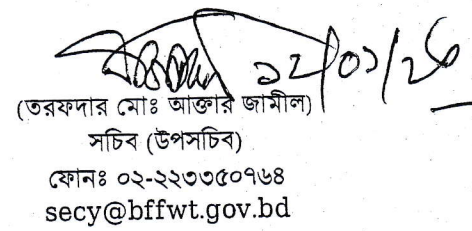 ১২/০১/২৬
(তরফদার মোঃ আক্তার জামীল)
সচিব (উপসচিব)
ফোনঃ ০২-২২৩৩৫০৭৬৮
secy@bffwt.gov.bd